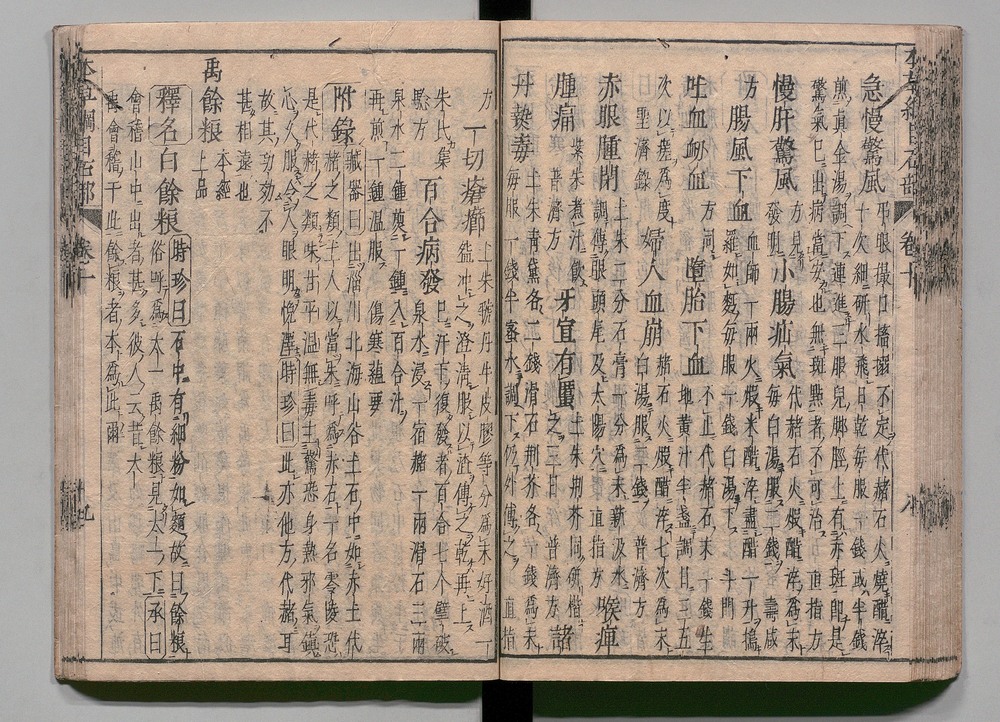 急慢驚風 吊眼撮口搐搦不定代赭石火燒醋淬
十次細研水飛日乾毎服一錢或半錢
煎真金湯調下連進三服兒脚脛上有赤斑即是
驚氣已出病當安也無斑點者不可治 直指方
慢肝驚風 方見發明 小腸疝氣 代赭石火煅醋淬爲末
毎白湯服二錢 壽域
方 腸風下血 血師一兩火煅米醋淬盡醋一升搗
羅如麪毎服一錢白湯下 斗門
吐血衄血 方同 墮胎下血 不止代赭石末一錢生
地黄汁半盞調日三五
次以瘥爲度 聖濟録 婦人血崩 赭石火煅醋淬七次爲末
白湯服二錢 普濟方
赤眼腫閉 土朱二分石膏一分爲末新汲水
調傅眼頭尾及太陽穴 直指方 喉痺
腫痛 紫朱煮汁飲 牙宣有䘌 土朱荊芥同研楷
之三日 普濟方 諸
丹熱毒 土朱青黛各二錢滑石荊芥各一錢爲末
毎服一錢半蜜水調下仍外傅之 直指
方 一切瘡癤 土朱虢丹牛皮膠等分爲末好酒一
盌冲之澄清服以渣傅之乾再上
朱氏集驗方 百合病發 已汗下復發者百合七个擘破
泉水浸一宿赭一兩滑石三兩
泉水二鍾煎一鍾入百合汁
再煎一鍾温服 傷寒藴要
附録 藏器曰出淄川北海山谷土石中如赤土代
赭之類土人以當朱呼爲赤石一名零陵恐
是代赭之類味甘平温無毒主驚恐身熱邪氣鎮
心久服令人眼明悦澤 時珍曰 此亦他方代赭耳
故其功効不
甚相遠也
禹餘糧 本經上品
釋名 白餘糧 時珍曰 石中有細粉如麵故曰餘糧
俗呼爲太一禹餘糧見太一下 承曰
會稽山中出者甚多彼人云昔大
禹會稽于此餘粮者本爲此爾
十九
本草綱目石部 卷十